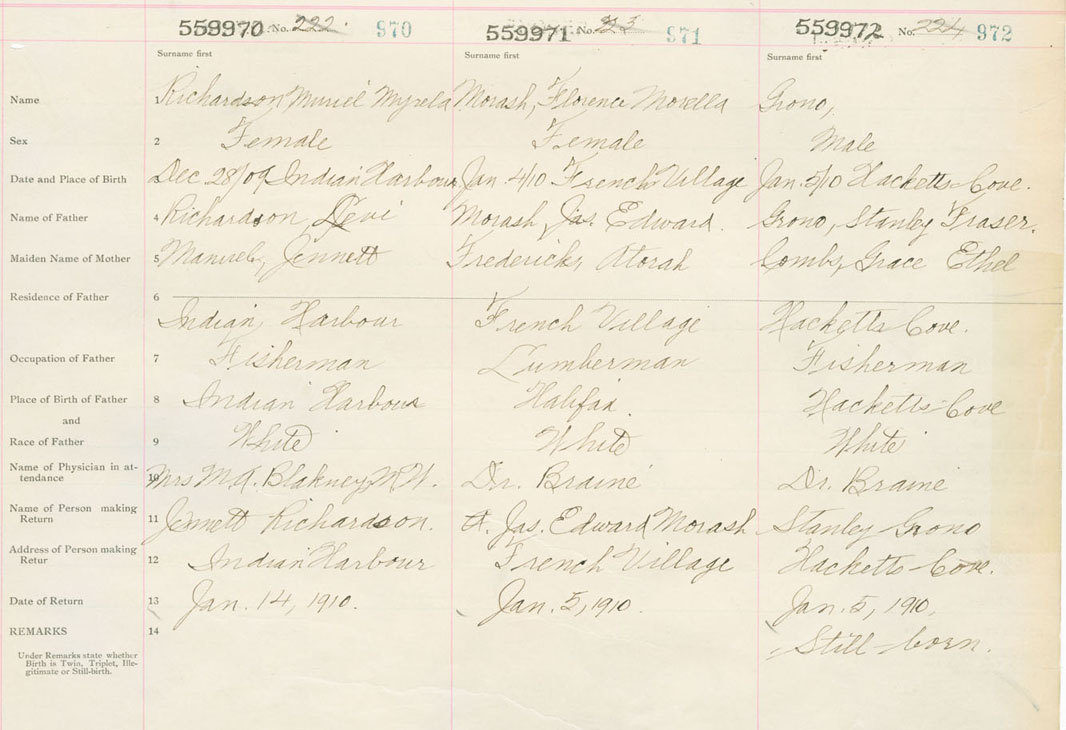 559970 No. 222. 970 559971 223 971 559972 No. 224 972
Surname first Surname first Surname first
Name 1 Richardson, Muriel Myrela Morash, Florence Morella Grono,
Sex 2 Female Female Male
Date and Place of Birth 3 Dec 28/09 Indian Harbour Jan. 4/10 French Village Jan. 5/10 Hacketts Cove.
Name of Father 4 Richardson, Levi Morash, Jas. Edward. Grono, Stanley Fraser.
Maiden Name of Mother 5 Manuel, Jennett Fredericks, Atorah Combs, Grace Ethel
Residence of Father 6
Indian Harbour French Village Hacketts Cove.
Occupation of Father 7 Fisherman Lumberman Fisherman
Place of Birth of Father 8 Indian Harbour Halifax. Hacketts Cove
and
Race of Father 9 White White White
Name of Physician in at-
tendance 10 Mrs M.A. Blakney, M.W. Dr. Braine Dr. Braine
Name of Person making
Return 11 Jennett Richardson. Jas. Edward Morash Stanley Grono
Address of Person making
Retur 12 Indian Harbour French Village Hacketts Cove.
Date of Return 13 Jan. 14, 1910. Jan. 5, 1910. Jan. 5, 1910.
REMARKS 14 Still-born.
Under Remarks state whether
Birth is Twin, Triplet, Ille-
gitimate or Still-birth.